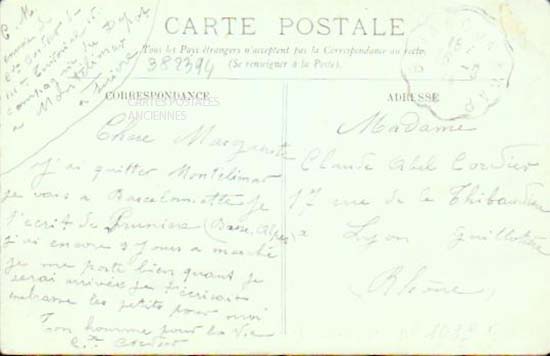 CARTE POSTALE
Tous les Pays étrangers n'acceptent pas la Correspondance au recto
(Se renseigner à la Poste).
382394
CORRESPONDANCE
CARTES POSTALES
ANCIENNES
Chere Marguerite
J'ai quitter Montelimar
je vais a Barcelonnette Je
t'ecrit de Prunière (Basse Alpes)
j'ai encore 3 jours a marché
je me porte bien quant je
serai arrivée je t'ecrirais
embrasse les petits pour moi
Ton homme pour la vie
Cordier
compagnie du Depot
a Montelimar
ADRESSE
Madame
Claude Abel Cordier
17 rue de la Thibaudière
a Lyon Guillotière
Rhône